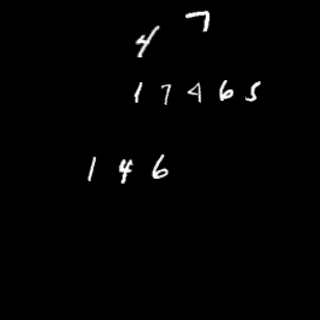 4 7
1 7 4 6 5
1 4 6